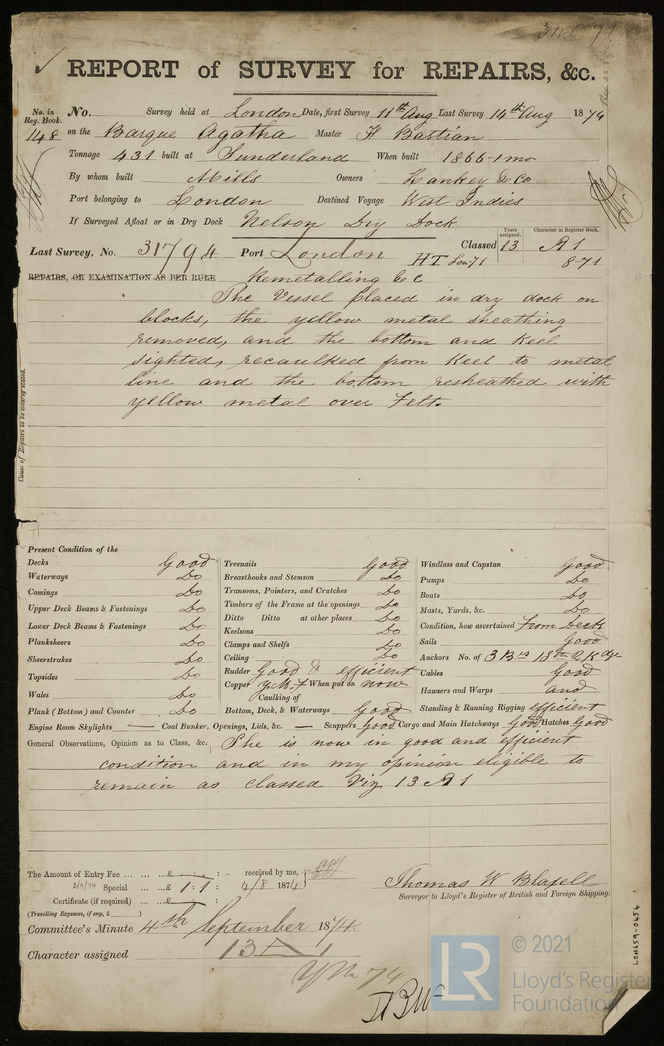 REPORT of SURVEY for REPAIRS, &c.
No. in Reg. Book. No. Survey held at London Date, first Survey 11th Aug Last Survey 14th Aug 1874
148 on the Barque Agatha Master H Bastian
Tonnage 431 built at Sunderland When built 1866-1mo
By whom built Mills Owners Hankey & Co
Port belonging to London Destined Voyage West Indies
If Surveyed Afloat or in Dry Dock Nelson Dry Dock
Years assigned. Character in Register Book.
Last Survey, No. 31794 Port London Classed 13 A1
HT Lon 71 8-71
REPAIRS, OR EXAMINATION AS PER RULE Remetalling &c
The Vessel placed in dry dock on
blocks, the yellow metal sheathing
removed, and the bottom and keel
sighted, recaulked from keel to metal
line and the bottom resheathed with
yellow metal over Felt.
Cause of Repairs to be clearly stated.
Present Condition of the
Decks Good Treenails Good Windlass and Capstan Good
Waterways Do Breasthooks and Stemson Do Pumps Do
Comings Do Transoms, Pointers, and Crutches Do Boats Do
Upper Deck Beams & Fastenings Do Timbers of the Frame at the openings Do Masts, Yards, &c. Do
Lower Deck Beams & Fastenings Do Ditto Ditto at other places Do Condition, how ascertained from Deck
Planksheers Do Keelsons Do Sails Good
Sheerstrakes Do Clamps and Shelfs Do Anchors No. of 3 Brs 18th 2 Kdge
Topsides Do Ceiling Do Cables Good
Wales Do Rudder Good & efficient Hawsers and Warps and
Plank (Bottom) and Counter Do Copper Y.M.F When put on now Standing & Running Rigging efficient
Caulking of Bottom, Deck, & Waterways Good
Engine Room Skylights — Coal Bunker, Openings, Lids, &c. — Scuppers Good Cargo and Main Hatchways Good Hatches Good
General Observations, Opinion as to Class, &c. She is now in good and efficient
condition and in my opinion eligible to
remain as classed Viz 13 A1
The Amount of Entry Fee ... £ : : received by me,
2/9/74 Special ... £ 1 : 1 : 4/8 1874
Certificate (if required) ... : :
(Travelling Expenses, if any, £ )
Thomas W Blazell
Surveyor to Lloyd's Register of British and Foreign Shipping.
Committee's Minute 4th September 1874.
Character assigned 13 A 1
YM 74
LON659-0454
LR
© 2021
Lloyd's Register
Foundation